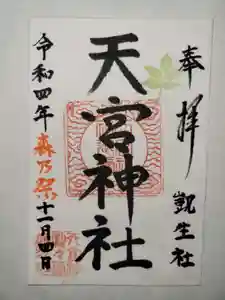 奉拝
凱生社
天宮神社
令和四年
森乃祭
十一月四日